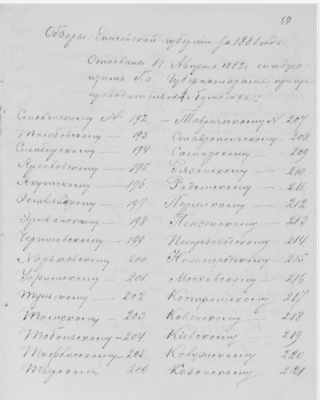 59
Обзоры Енисейской губернiи за 1881 годъ
Отосланы 17 Августа 1882 г.
Г.г. Губернаторамъ при пре-
проводительныхъ бумагахъ:
Смоленскому № 192, — Таврическому № 207
Тамбовскому — 193 Ставропольскому — 208
Симбирскому — 194 Самарскому — 209
Ярославскому — 195 Рязанскому — 210
Якутскому — 196. Радомскому — 211.
Эстляндскому — 197 Пермскому — 212
Эриванскому — 198 Пензенскому — 213
Черниговскому — 199 Петрозаводскому — 214
Харьковскому — 200. Нижегородскому — 215
— 201. Московскому — 216
Тульскому — 202 Костромскому — 217
Томскому — 203 Ковенскому — 218
Тобольскому — 204 Кіевскому — 219
— 205 Калужскому — 220
Тверскому — 206 Казанскому — 221